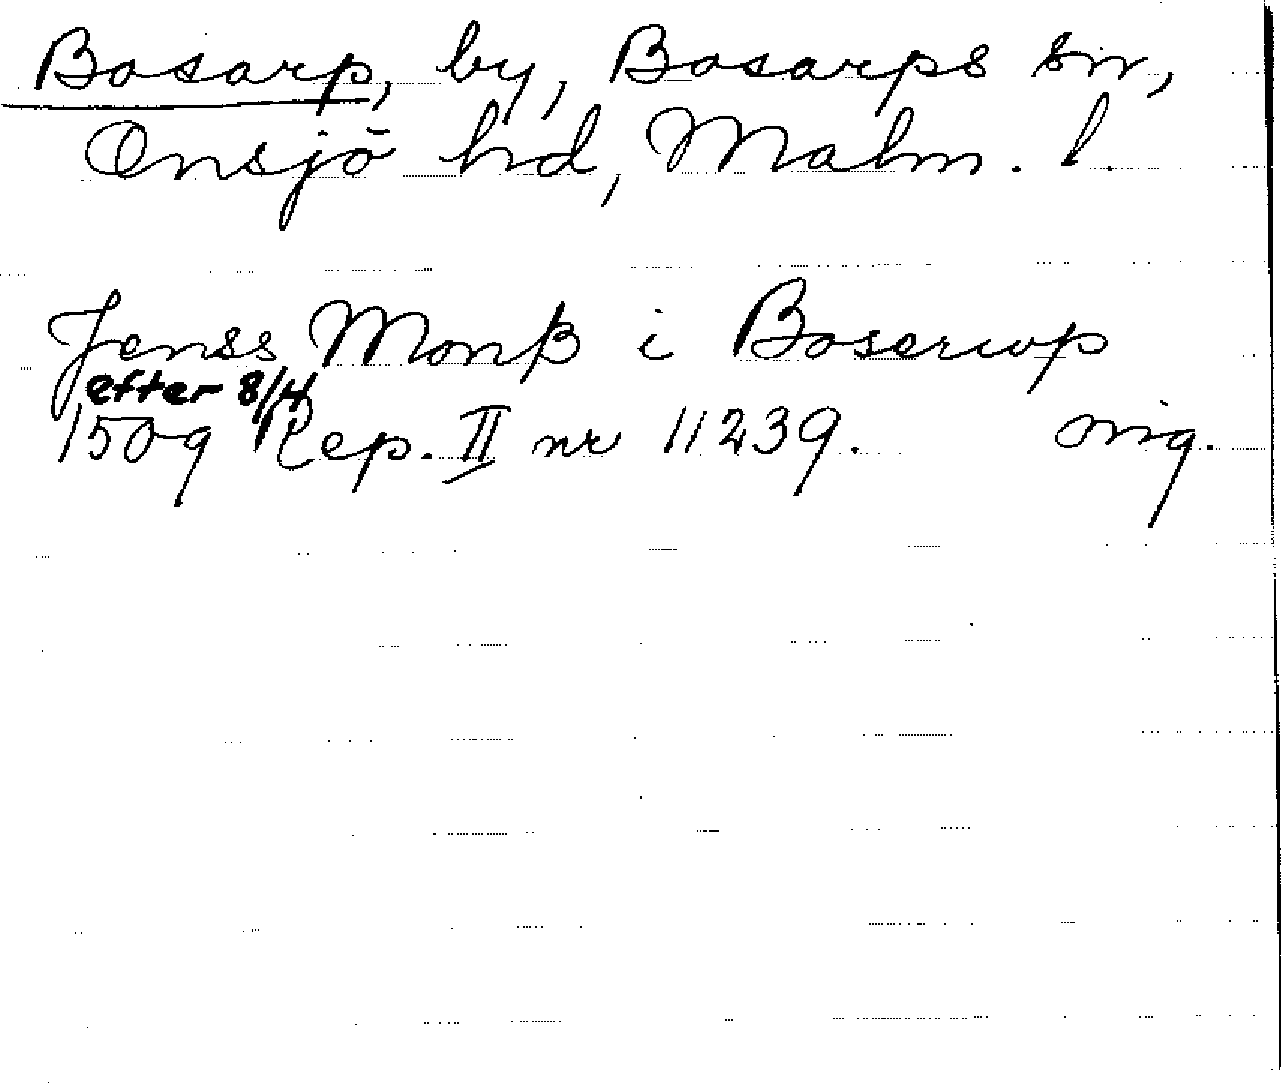 Bosarp, by, Bosarps sn,
Onsjö hd, Malm. l.
Jenss Monß i Boserwp
efter 8/4
1509 Rep. II nr 11239. orig.